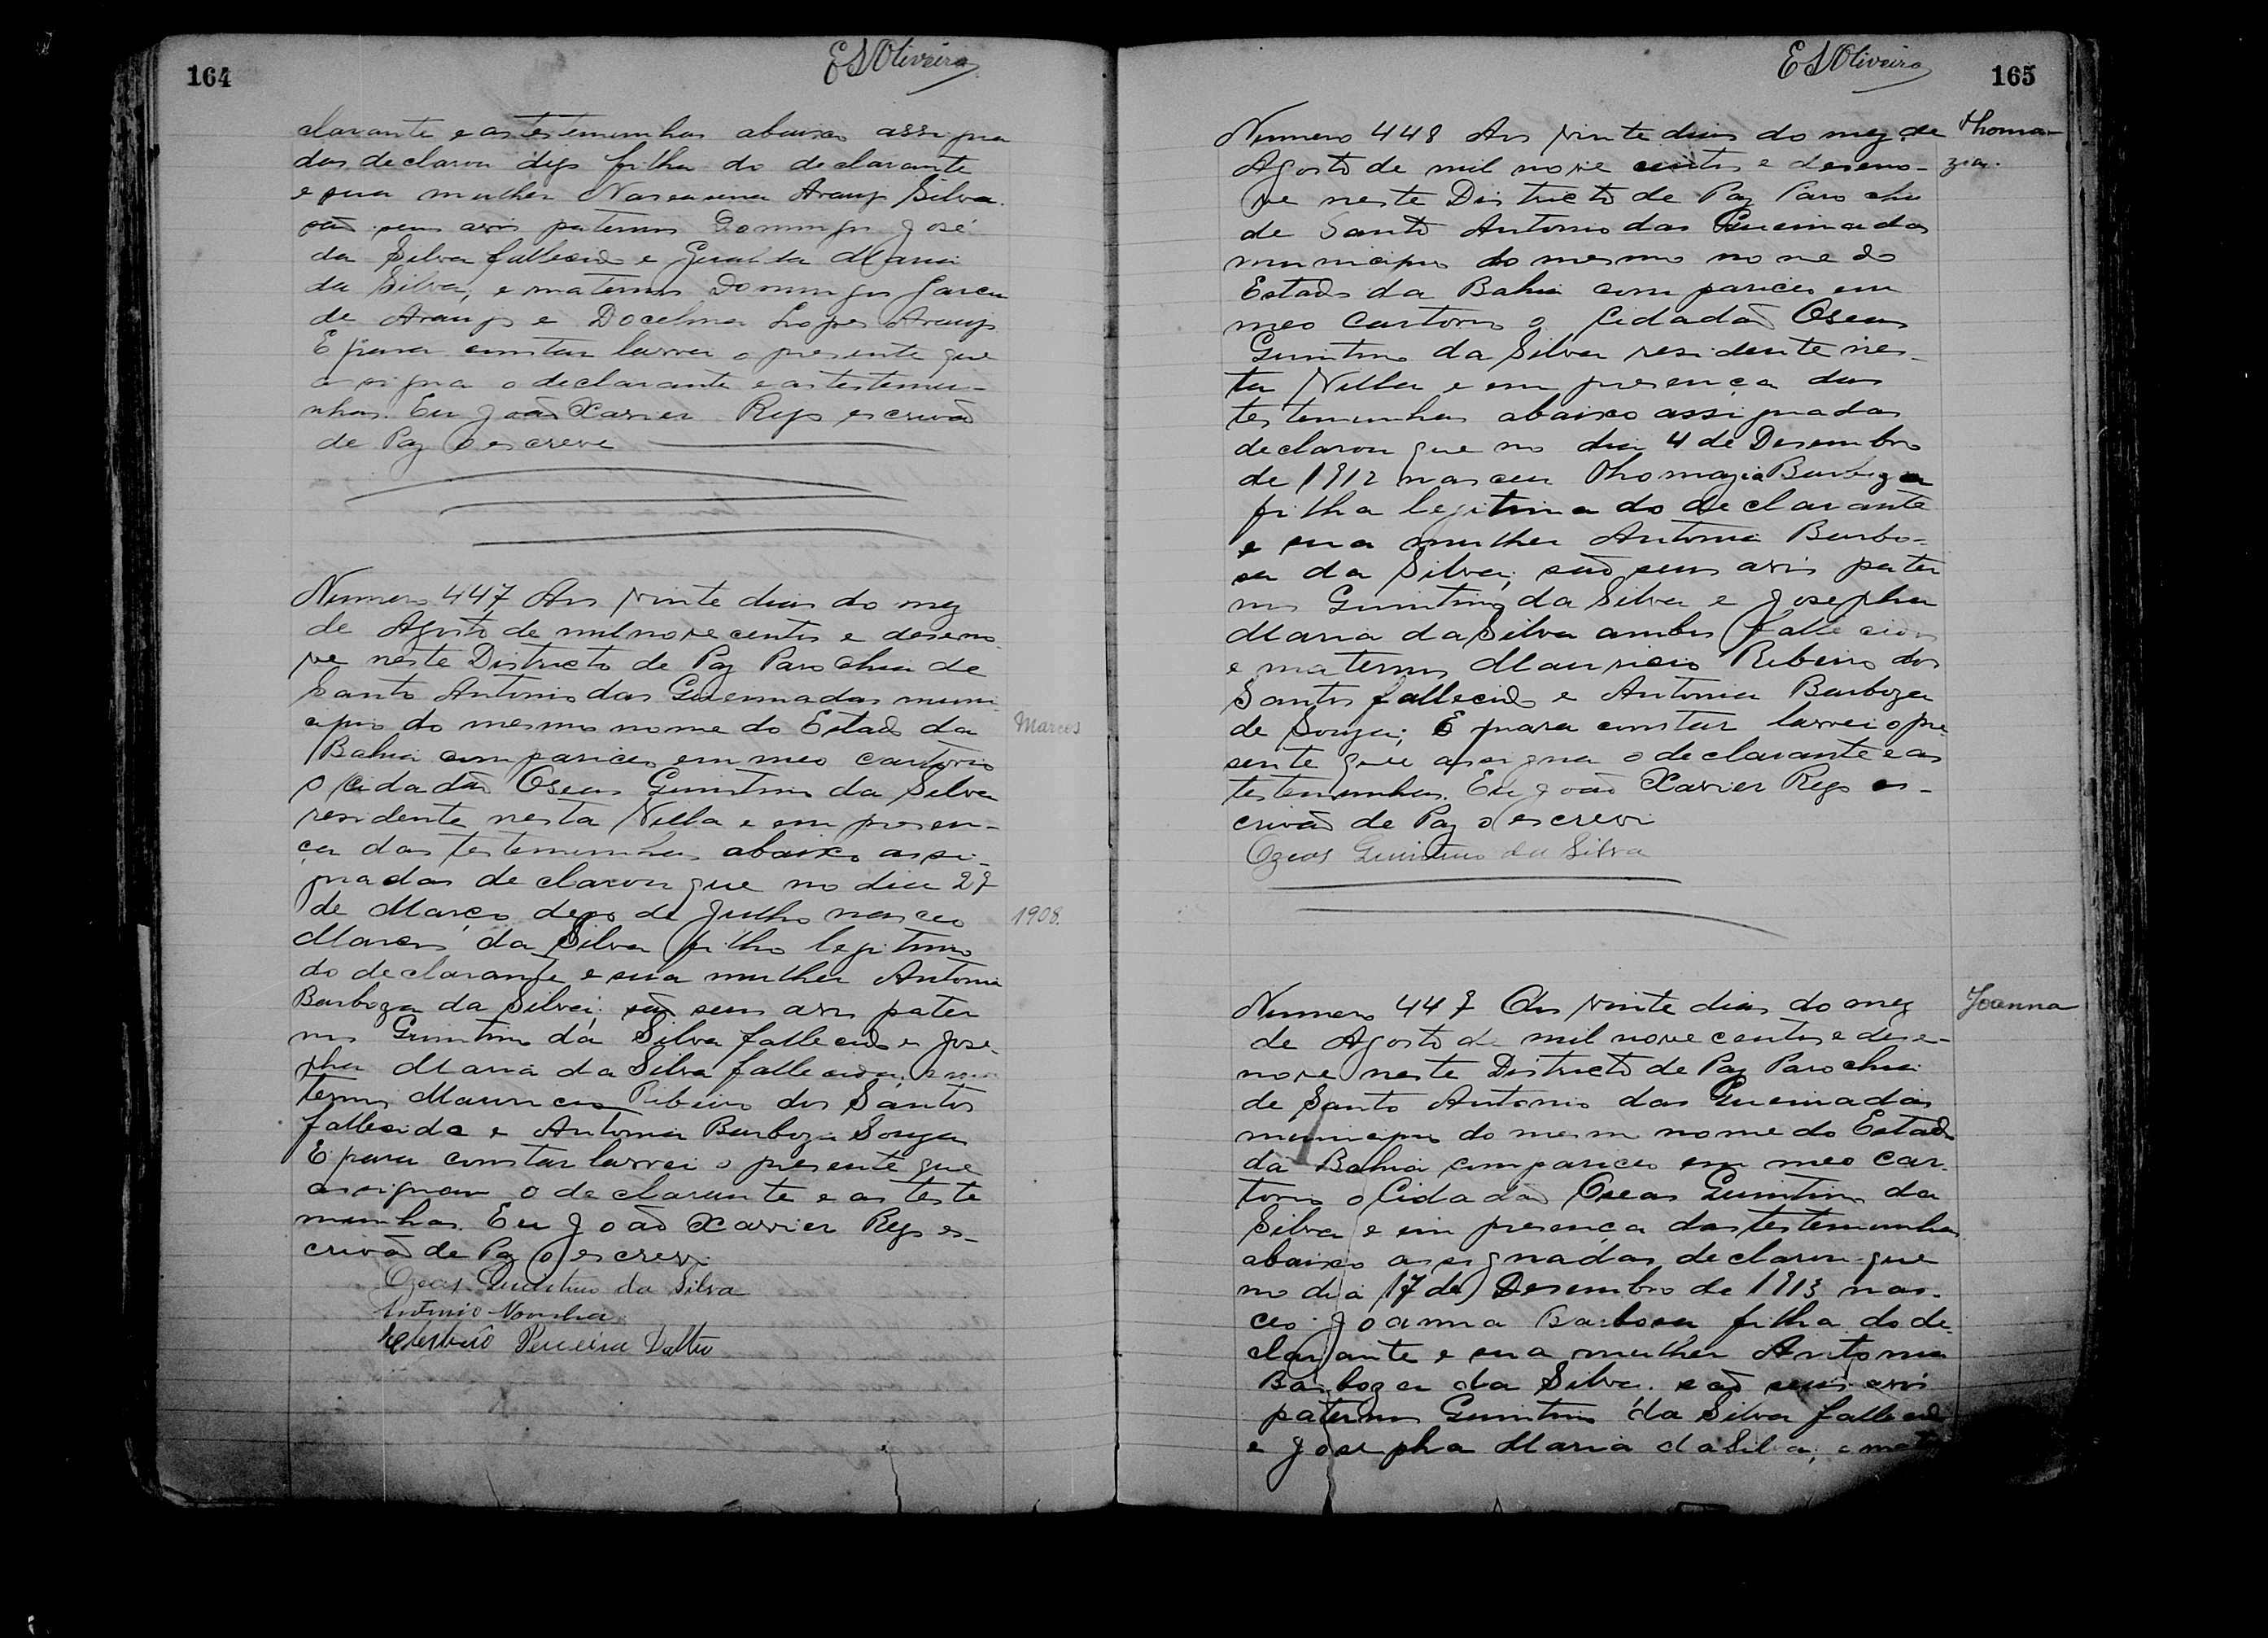 164
E S Oliveira
clarante e as testemunhas abaixo assigna
das declarou digo filha do declarante
e sua mulher Araujo Silva.
são seus avós paternos Domingos José
da Silva fallecido e Maria
da Silva, e maternos Domingos Garcia
de Araujo e Lopes Araujo
E para constar lavrei o presente que
assigna o declarante e as testemu-
nhas. Eu João Xavier Rego escrivão
de Paz o escreve
Numero 447 Aos vinte dias do mez
de Agosto de mil nove centos e deseno
ve neste Districto de Paz Parochia de
Santo Antonio das Queimadas muni
cipio do mesmo nome do Estado da
Marcos
Bahia compariceo em meo cartorio
o Cidadão Oseas Guintino da Silva
residente nesta Villa e em presen-
ça das testemunhas abaixo assi-
gnadas declarou que no dia 27
de Março, digo de Julho nasceo
1908.
Marcos da Silva filho legitimo
do declarante e sua mulher Antonia
Barboza da Silva; são seus avos pater
nos Guintino da Silva fallecido e Jose-
pha Maria da Silva fallecida, e ma
ternos Mauricio Ribeiro dos Santos
fallecido e Antonia Barboza Souza
E para constar lavrei o presente que
assignam o declarante e as teste
munhas. Eu João Xavier Rego es-
crivão de Paz o escrevi.
Ozeas Guintino da Silva
Antonio
Pereira Daltro
E S Oliveira
165
Numero 448 Aos vinte dias do mez de
Thoma-
Agosto de mil nove centos e deseno-
zia.
ve neste Districto de Paz Parochia
de Santo Antonio das Queimadas
municipio do mesmo nome do
Estado da Bahia compariceo em
meo Cartorio o Cidadão Oseas
Guintino da Silva residente nes-
ta Villa e em presença das
testemunhas abaixo assignadas
declarou que no dia 4 de Desembro
de 1912 nasceu Thomazia Barboza
filha legitima do declarante
e sua mulher Antonia Barbo-
sa da Silva; são seus avós pater
nos Guintino da Silva e Josepha
Maria da Silva ambos fallecidos
e maternos Mauricio Ribeiro dos
Santos fallecido e Antonia Barboza
de Souza; E para constar lavrei o pre
sente que assigna o declarante e as
testemunhas. Eu João Xavier Rego es-
crivão de Paz o escrevi
Ozeas Guintino da Silva
Numero 449 Aos vinte dias do mez
Joanna
de Agosto de mil nove centos e dese-
nove neste Districto de Paz Parochia
de Santo Antonio das Queimadas
municipio do mesmo nome do Estado
da Bahia compariceo em meo Car-
torio o Cidadão Oseas Guintino da
Silva e em presença das testemunhas
abaixo assignadas declarou que
no dia 17 de Desembro de 1913 nas-
ceo Joanna Barbosa filha do de-
clarante e sua mulher Antonia
Barboza da Silva. são seus avós
paternos Guintino da Silva fallecido
e Josepha Maria da Silva; e mat